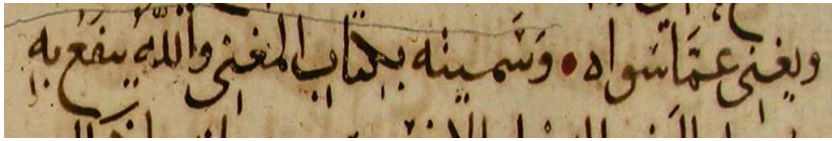 ويغني عمّا سواه • وسَمَّيته بكتاب المغني والله ينفع به